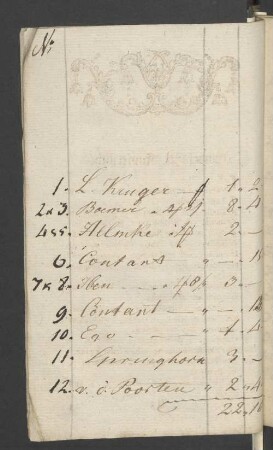 No
1. L. Kruger — ƒ 1. 2
2 & 3. Boemer . 4 8. 4
4 & 5. Helmke . 2. —
6. Contant " — . 18
7 & 8. Iben — . 3. —
9. Contant — " — .
10. Ego — " 4. 4
11. Sprenghorn 3. —
12. v. d. Poorten " 2. 4
22. 18